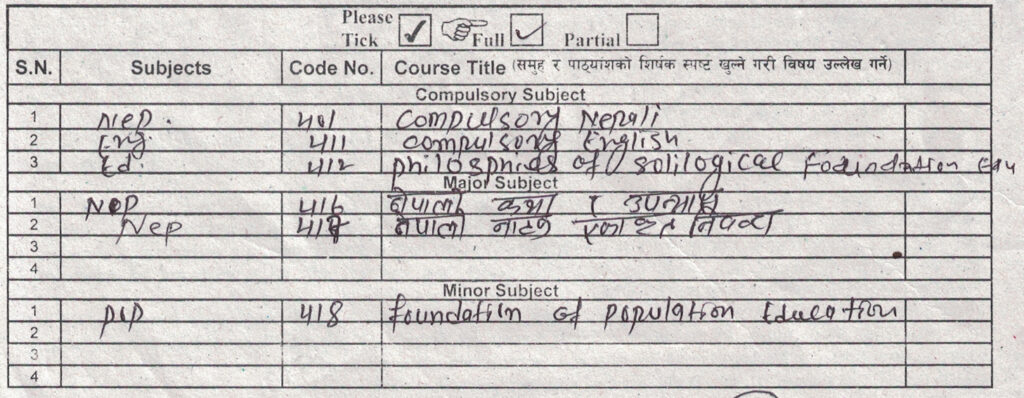 Please Tick Full Partial
S.N. Subjects Code No. Course Title (समुह र पाठ्यांशको शिर्षक स्पष्ट खुल्ने गरी विषय उल्लेख गर्ने)
Compulsory Subject
1 Nep. 401 Compulsory Nepali
2 Eng. 411 Compulsory English
3 Ed. 412 of Edu
Major Subject
1 Nep 416 नेपाली कथा र उपन्यास
2 Nep नेपाली नाटक
3
4
Minor Subject
1 pop 418 foundation of population Education
2
3
4